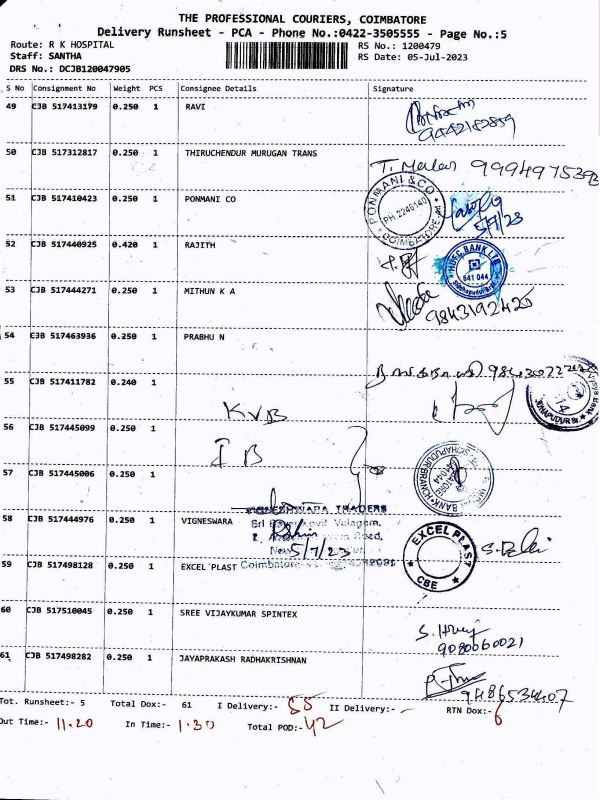 THE PROFESSIONAL COURIERS, COIMBATORE
Delivery Runsheet - PCA - Phone No.:0422-3505555 - Page No.:5
Route: R K HOSPITAL RS No.: 1200479
Staff: SANTHA RS Date: 05-Jul-2023
DRS No.: DCJB120047905
S No Consignment No Weight PCS Consignee Details Signature
49 CJB 517413179 0.250 1 RAVI
9442182859
50 CJB 517312817 0.250 1 THIRUCHENDUR MURUGAN TRANS
51 CJB 517410423 0.250 1 PONMANI CO
PONMANI & CO
COIMBATORE
5/7/23
52 CJB 517440925 0.420 1 RAJITH
HDFC BANK LTD
641 044
53 CJB 517444271 0.250 1 MITHUN K A
9843192425
54 CJB 517463936 0.250 1 PRABHU N
55 CJB 517411782 0.240 1
KVB
56 CJB 517445099 0.250 1
IB
57 CJB 517445006 0.250 1
58 CJB 517444976 0.250 1 VIGNESWARA
VIGNESHWARA TRADERS
5/7/23
59 CJB 517498128 0.250 1 EXCEL PLAST
Coimbatore
EXCEL PLAST
CBE
60 CJB 517510045 0.250 1 SREE VIJAYKUMAR SPINTEX
9080060021
61 CJB 517498282 0.250 1 JAYAPRAKASH RADHAKRISHNAN
9486534407
Tot. Runsheet:- 5 Total Dox:- 61 I Delivery:- 55 II Delivery:- - RTN Dox:- 6
Out Time:- 11.20 In Time:- 1.30 Total POD:- 42